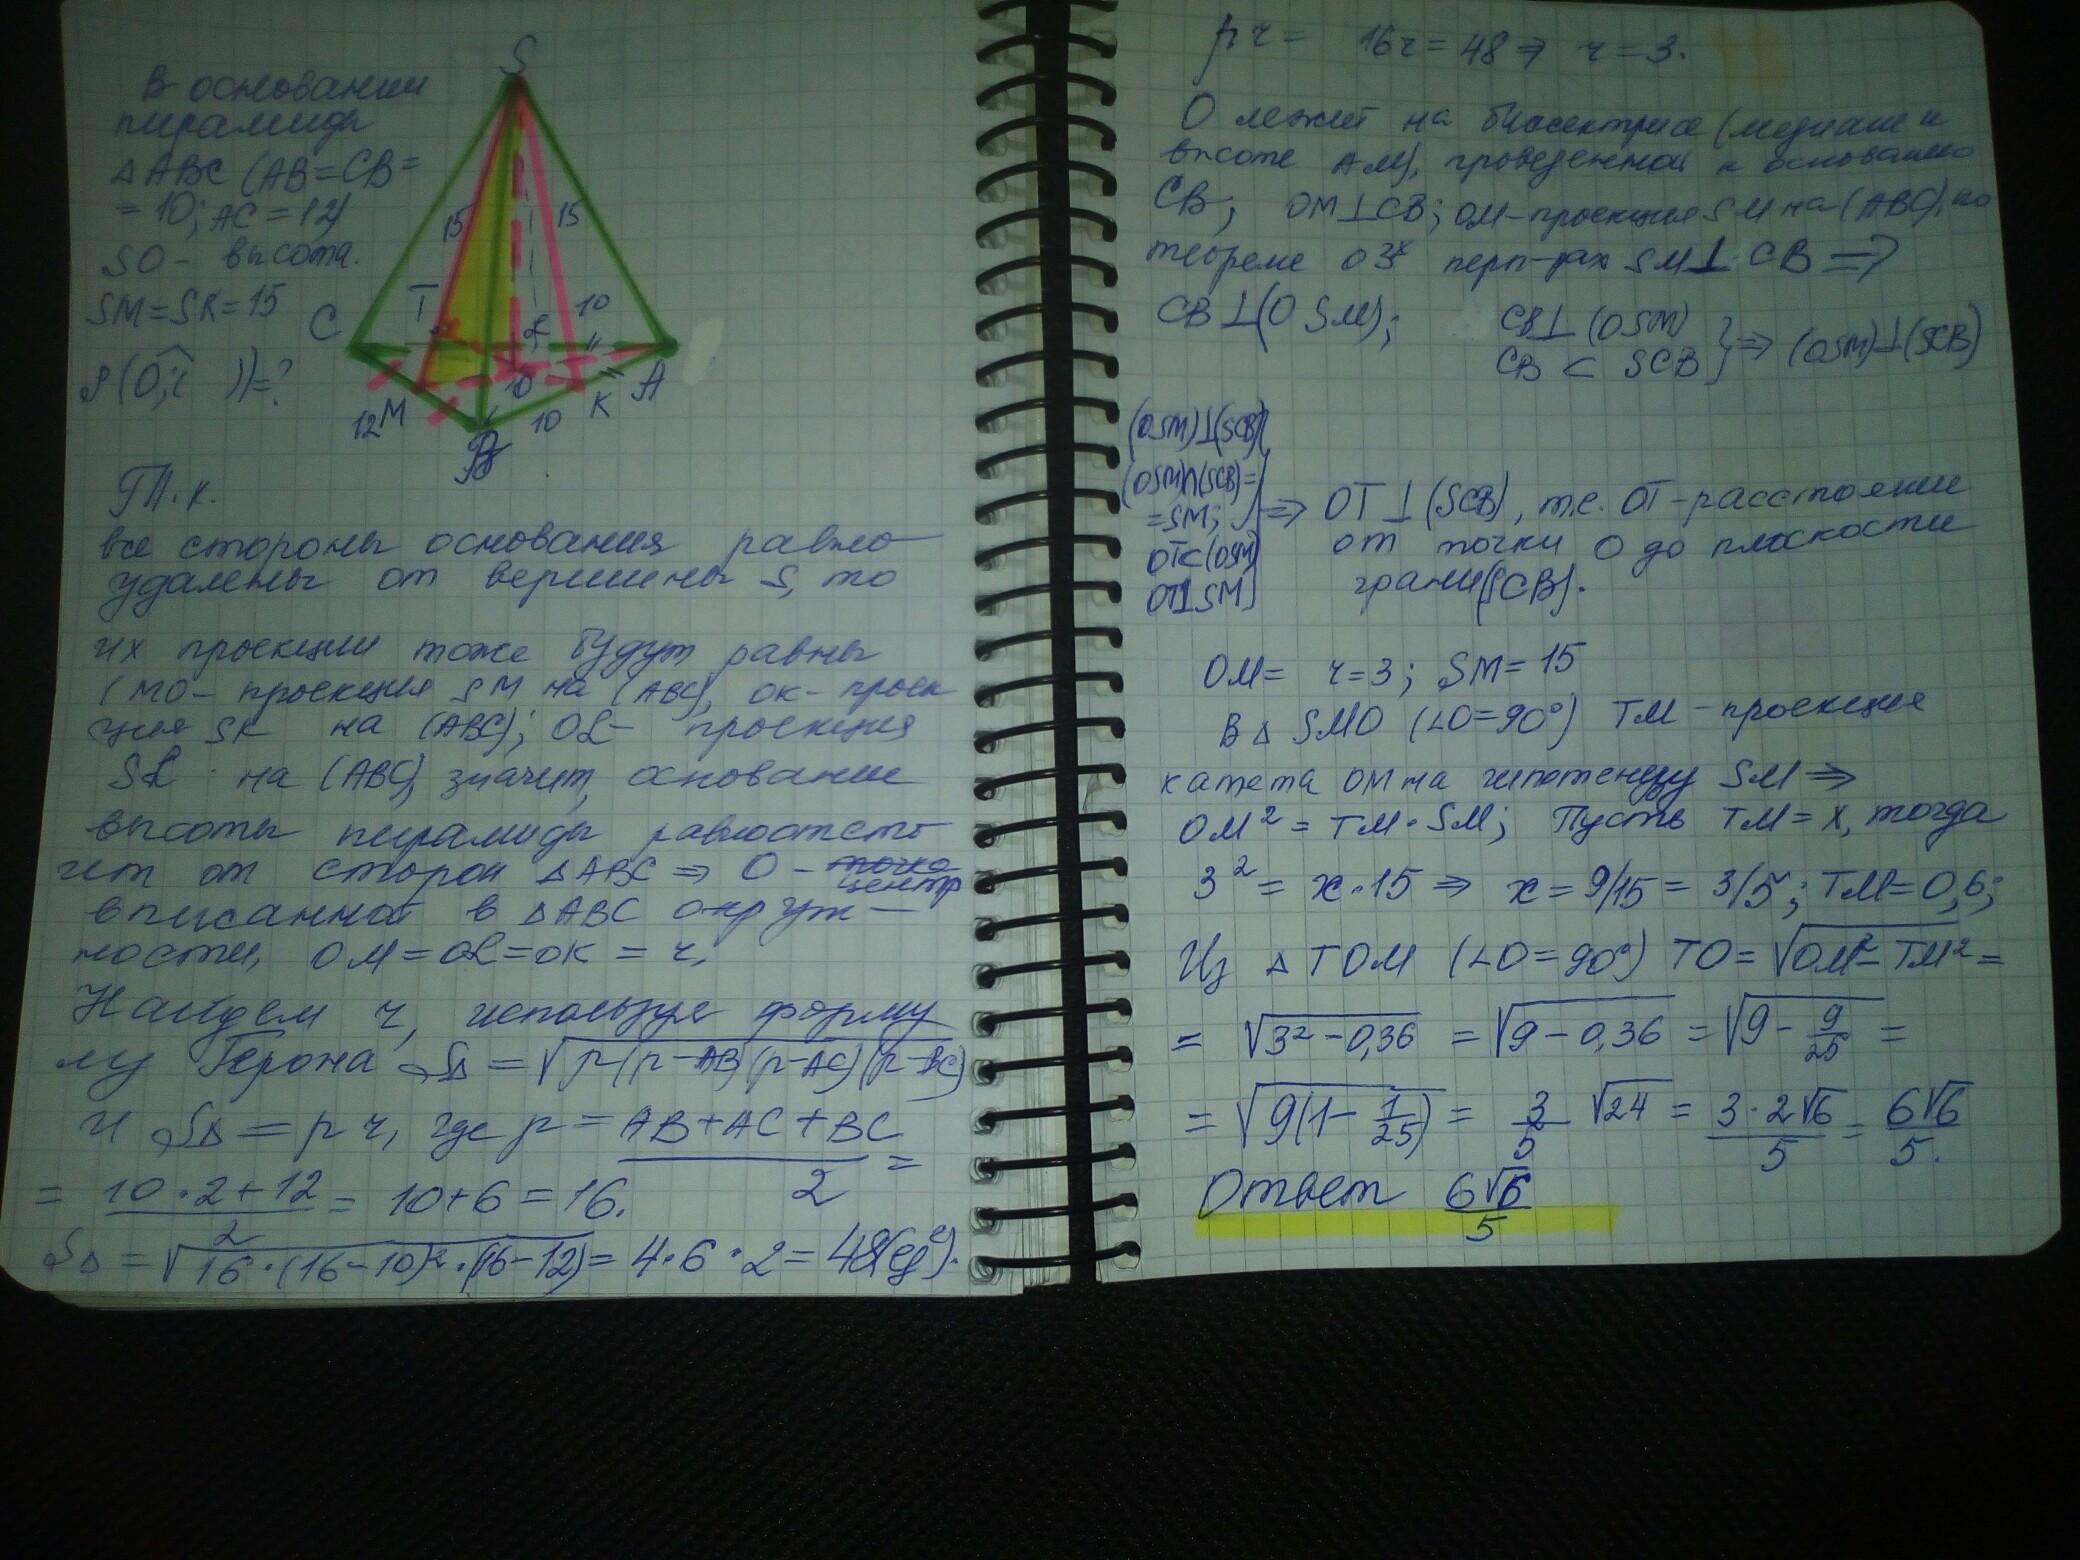 В основании
пирамиды
△ABC (AB=CB=
=10; AC=12)
SO- высота.
SM=SK=15
S
15
15
T
10
C
L
O
A
K
10
12
M
B
Т.к.
все стороны основания равно-
удалены от вершины S, то
их проекции тоже будут равны
(MO- проекция SM на (ABC), OK- проек
ция SK на (ABC); OL- проекция
SL на (ABC), значит, основание
высоты пирамиды равноотсто
ит от сторон △ABC ⇒ O - центр
вписанной в △ABC окруж-
ности, OM=OL=OK=r.
Найдем r, используя форму
лу Герона S△=√p(p-AB)(p-AC)(p-BC)
и S△=pr, где p=(AB+AC+BC)/2=
= (10·2+12)/2 = 10+6=16.
S△=√16·(16-10)²·(16-12)=4·6·2=48(ед²).
pr= 16r=48⇒ r=3.
O лежит на биссектрисе (медиане и
высоте AM), проведенной к основанию
CB; OM⊥CB; OM-проекция SM на (ABC), по
теореме о 3х перп-рах SM⊥CB⇒
CB⊥(OSM); CB⊥(OSM)
CB⊂SCB }⇒ (OSM)⊥(SCB)
(OSM)⊥(SCB)
(OSM)∩(SCB)=
=SM; ⇒ OT⊥(SCB), т.е. OT-расстояние
OT⊂(OSM) от точки O до плоскости
OT⊥SM грани(SCB).
OM= r=3; SM=15
В △ SMO (∠O=90°) TM-проекция
катета OM на гипотенузу SM⇒
OM²=TM·SM; Пусть TM=x, тогда
3²=x·15⇒ x=9/15=3/5; TM=0,6;
Из △TOM (∠O=90°) TO=√OM²-TM²=
= √3²-0,36 =√9-0,36 =√9-9/25 =
=√9(1-1/25) = 3/5 √24 = 3·2√6/5 = 6√6/5.
Ответ 6√6/5